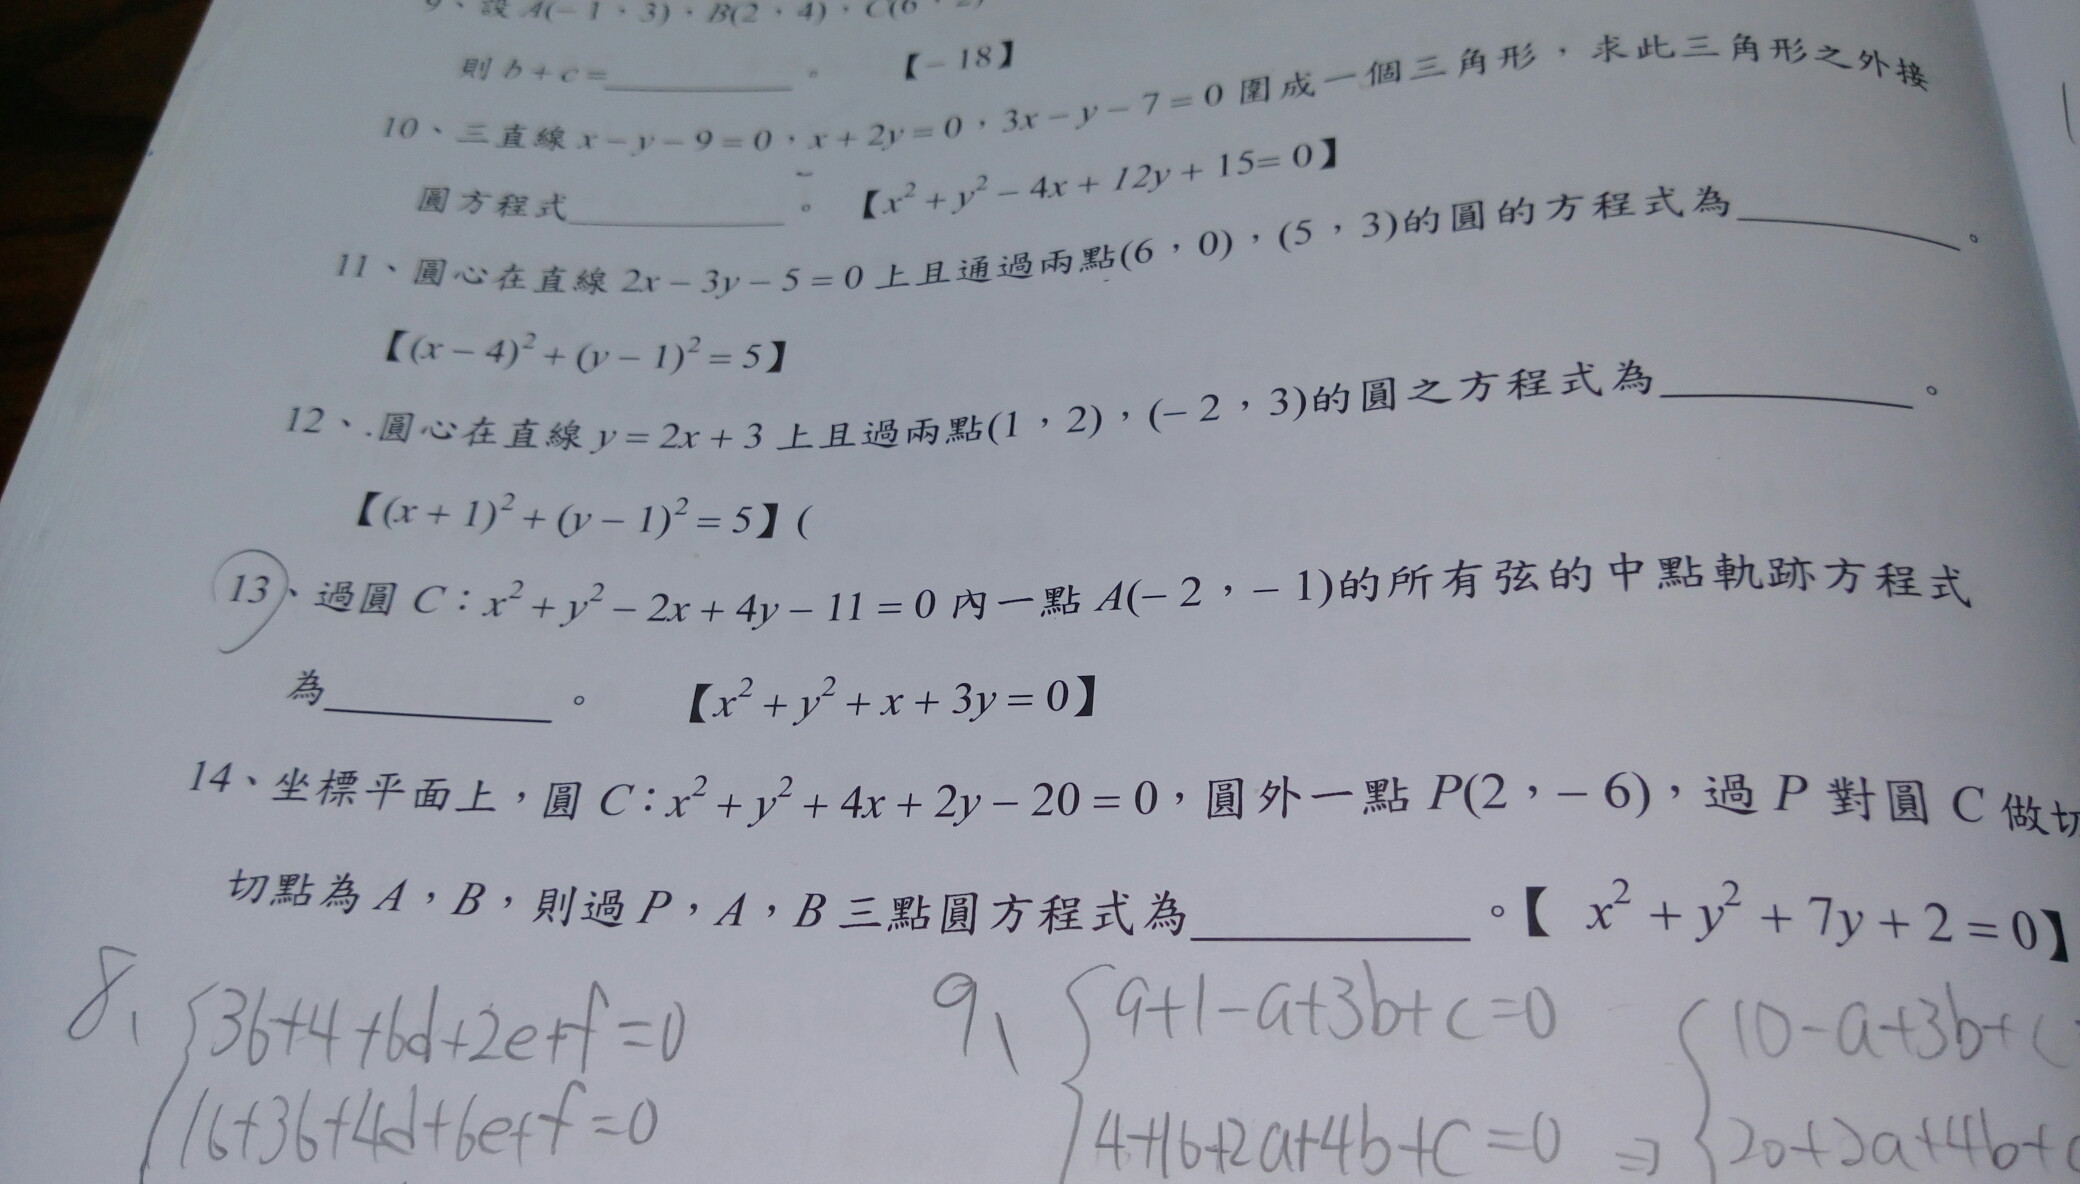 9、設 A(−1，3)，B(2，4)，C(6，
則 b + c = ＿＿＿。 【− 18】
10、三直線 x − y − 9 = 0，x + 2y = 0，3x − y − 7 = 0 圍成一個三角形，求此三角形之外接
圓方程式＿＿＿。 【x² + y² − 4x + 12y + 15= 0】
11、圓心在直線 2x − 3y − 5 = 0 上且通過兩點(6，0)，(5，3)的圓的方程式為＿＿＿。
【(x − 4)² + (y − 1)² = 5】
12、.圓心在直線 y = 2x + 3 上且過兩點(1，2)，(− 2，3)的圓之方程式為＿＿＿。
【(x + 1)² + (y − 1)² = 5】(
13、過圓 C：x² + y² − 2x + 4y − 11 = 0 內一點 A(− 2，− 1)的所有弦的中點軌跡方程式
為＿＿＿。 【x² + y² + x + 3y = 0】
14、坐標平面上，圓 C：x² + y² + 4x + 2y − 20 = 0，圓外一點 P(2，− 6)，過 P 對圓 C 做切
切點為 A，B，則過 P，A，B 三點圓方程式為＿＿＿。【 x² + y² + 7y + 2 = 0】
8、 {36+4+6d+2e+f=0
16+36+4d+6e+f=0
9、 {9+1-a+3b+c=0 {10-a+3b+c
4+16+2a+4b+c=0 ⇒ 20+2a+4b+c